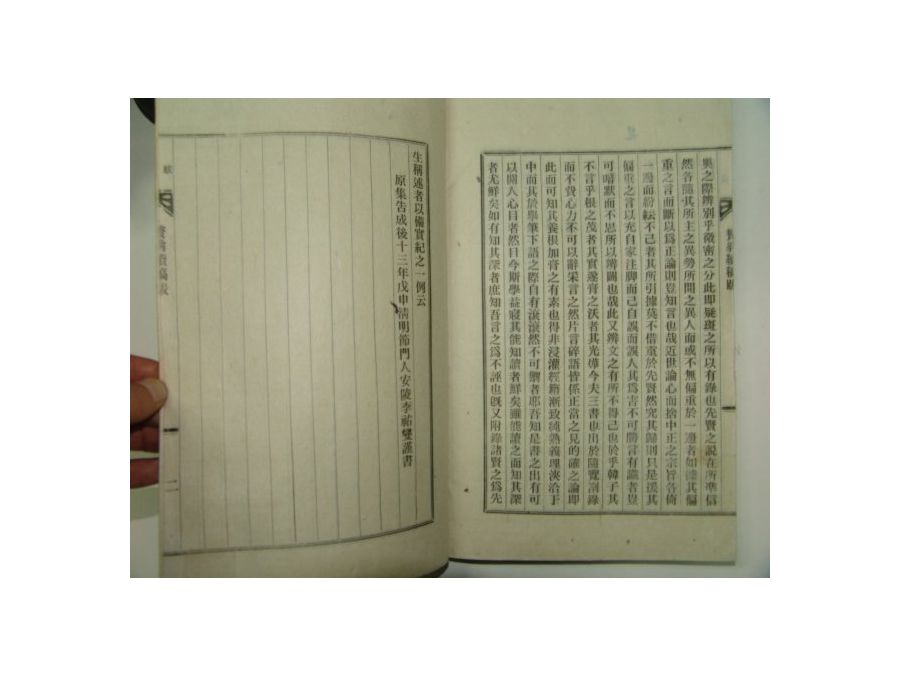 奧之際辨別乎微密之分此即疑斑之所以有錄也先賢之說在所準信
然各隨其所主之異勢所問之異人而或不無偏重於一邊者如據其偏
重之言而斷以爲正論則豈知言也哉近世論心而捨中正之宗旨各倚
一邊而紛紜不已者其所引據莫不借重於先賢然究其歸則只是援其
偏重之言以充自家注脚而已自誤而誤人其爲害不可勝言有識者豈
可喑默而不思所以辨闢也哉此又辨文之有所不得已也於乎韓子其
不言乎根之茂者其實遂膏之沃者其光燁今夫三書也出於隨覽箚錄
而不費心力不可以辭采言之然片言碎語皆係正當之見的確之論即
此而可知其養根加膏之有素也得非浸灌經籍漸致純熟義理浹洽于
中而其於擧筆下語之際自有滾滾然不可禦者耶吾知是書之出有可
以開人心目者然目今斯學益寢其能知讀者鮮矣雖能讀之而知其深
者尤鮮矣如有知其深者庶知吾言之爲不誣也旣又附錄諸賢之爲先
生稱述者以備實紀之一例云
原集告成後十三年戊申淸明節門人安陵李祐燮謹書
二